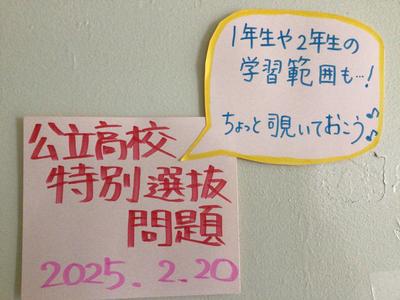 1年生や2年生の
学習範囲も…!
ちょっと覗いておこう♪
公立高校
特別選抜
問題
2025.2.20